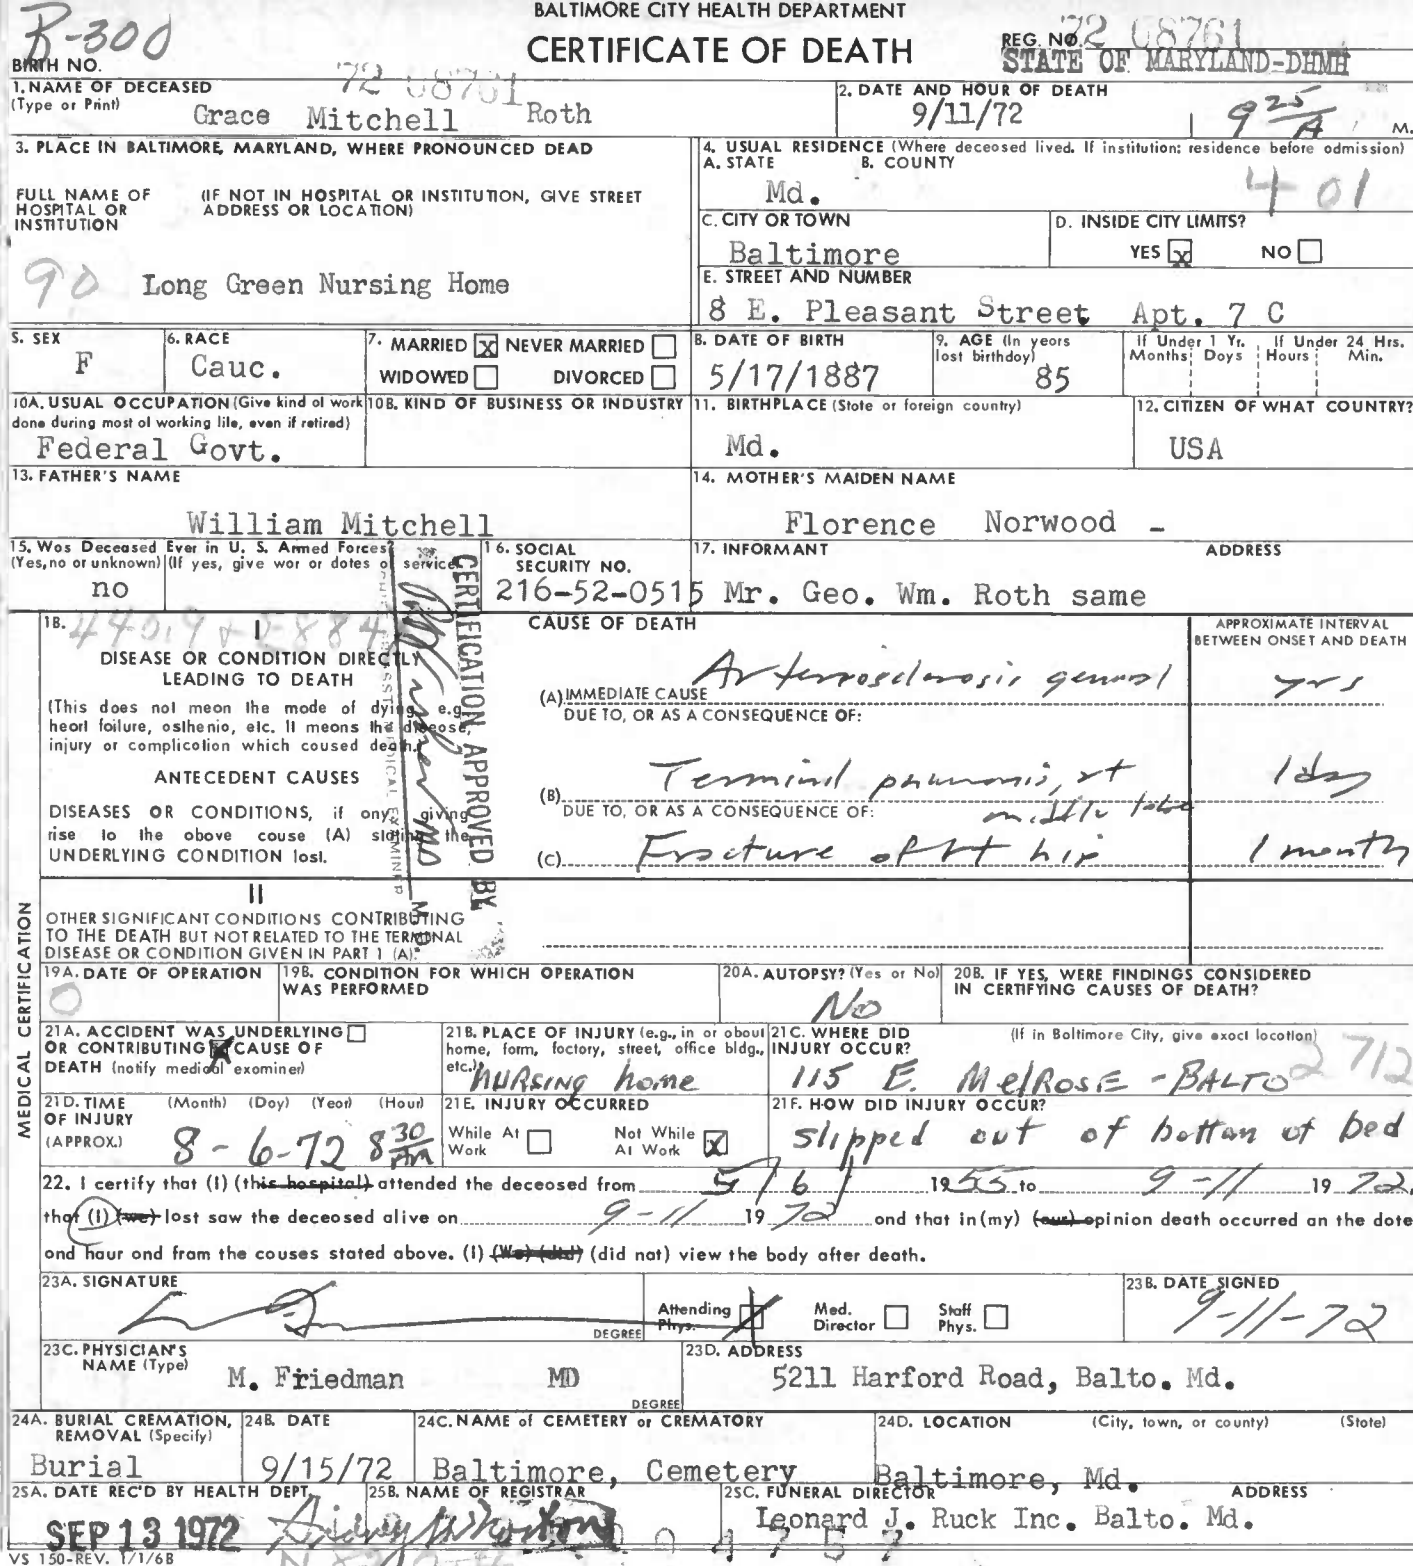 R-300
BALTIMORE CITY HEALTH DEPARTMENT
CERTIFICATE OF DEATH
REG. NO. 72 08761
STATE OF MARYLAND-DHMH
BIRTH NO.
72 08761
1. NAME OF DECEASED
(Type or Print)
Grace Mitchell Roth
2. DATE AND HOUR OF DEATH
9/11/72 9 25/A M.
3. PLACE IN BALTIMORE, MARYLAND, WHERE PRONOUNCED DEAD
FULL NAME OF HOSPITAL OR INSTITUTION
(IF NOT IN HOSPITAL OR INSTITUTION, GIVE STREET ADDRESS OR LOCATION)
90 Long Green Nursing Home
4. USUAL RESIDENCE (Where deceased lived. If institution: residence before admission)
A. STATE B. COUNTY
Md. 4 01
C. CITY OR TOWN
Baltimore
D. INSIDE CITY LIMITS?
YES x NO
E. STREET AND NUMBER
8 E. Pleasant Street Apt. 7 C
5. SEX
F
6. RACE
Cauc.
7. MARRIED x NEVER MARRIED
WIDOWED DIVORCED
8. DATE OF BIRTH
5/17/1887
9. AGE (In years last birthday)
85
If Under 1 Yr. If Under 24 Hrs.
Months Days Hours Min.
10A. USUAL OCCUPATION (Give kind of work done during most of working life, even if retired)
Federal Govt.
10B. KIND OF BUSINESS OR INDUSTRY
11. BIRTHPLACE (State or foreign country)
Md.
12. CITIZEN OF WHAT COUNTRY?
USA
13. FATHER'S NAME
William Mitchell
14. MOTHER'S MAIDEN NAME
Florence Norwood -
15. Was Deceased Ever in U. S. Armed Forces?
(Yes, no or unknown) (If yes, give war or dates of service)
no
16. SOCIAL SECURITY NO.
216-52-0515
17. INFORMANT ADDRESS
Mr. Geo. Wm. Roth same
18. 440.9 + E884
I
DISEASE OR CONDITION DIRECTLY
LEADING TO DEATH
(This does not mean the mode of dying, e.g.,
heart failure, asthenia, etc. It means the disease,
injury or complication which caused death.)
ANTECEDENT CAUSES
DISEASES OR CONDITIONS, if any, giving
rise to the above cause (A) stating the
UNDERLYING CONDITION last.
CERTIFICATION APPROVED BY
ASSISTANT MEDICAL EXAMINER
M.D.
CAUSE OF DEATH
APPROXIMATE INTERVAL
BETWEEN ONSET AND DEATH
(A) IMMEDIATE CAUSE Arteriosclerosis general yrs
DUE TO, OR AS A CONSEQUENCE OF:
(B) Terminal pneumonia, rt middle lobe 1 day
DUE TO, OR AS A CONSEQUENCE OF:
(C) Fracture of rt hip 1 month
II
OTHER SIGNIFICANT CONDITIONS CONTRIBUTING
TO THE DEATH BUT NOT RELATED TO THE TERMINAL
DISEASE OR CONDITION GIVEN IN PART 1 (A).
MEDICAL CERTIFICATION
19A. DATE OF OPERATION
0
19B. CONDITION FOR WHICH OPERATION
WAS PERFORMED
20A. AUTOPSY? (Yes or No)
No
20B. IF YES, WERE FINDINGS CONSIDERED
IN CERTIFYING CAUSES OF DEATH?
21A. ACCIDENT WAS UNDERLYING
OR CONTRIBUTING x CAUSE OF
DEATH (notify medical examiner)
21B. PLACE OF INJURY (e.g., in or about
home, farm, factory, street, office bldg.,
etc.) NURSING home
21C. WHERE DID (If in Baltimore City, give exact location)
INJURY OCCUR?
115 E. MelROSE - BALTO 2712
21D. TIME (Month) (Day) (Year) (Hour)
OF INJURY
(APPROX.) 8-6-72 8 30 PM
21E. INJURY OCCURRED
While At Work Not While At Work x
21F. HOW DID INJURY OCCUR?
slipped out of bottom of bed
22. I certify that (I) (this hospital) attended the deceased from 5/6/ 1955 to 9-11 1972,
that (I) (we) last saw the deceased alive on 9-11 1972 and that in (my) (our) opinion death occurred on the date
and hour and from the causes stated above. (I) (We) (did) (did not) view the body after death.
23A. SIGNATURE
DEGREE
Attending Phys. Med. Director Staff Phys.
23B. DATE SIGNED
9-11-72
23C. PHYSICIAN'S
NAME (Type)
M. Friedman MD
DEGREE
23D. ADDRESS
5211 Harford Road, Balto. Md.
24A. BURIAL CREMATION,
REMOVAL (Specify)
Burial
24B. DATE
9/15/72
24C. NAME of CEMETERY or CREMATORY
Baltimore, Cemetery
24D. LOCATION (City, town, or county) (State)
Baltimore, Md.
25A. DATE REC'D BY HEALTH DEPT.
SEP 13 1972
25B. NAME OF REGISTRAR
25C. FUNERAL DIRECTOR ADDRESS
Leonard J. Ruck Inc. Balto. Md.
VS 150-REV. 1/1/68